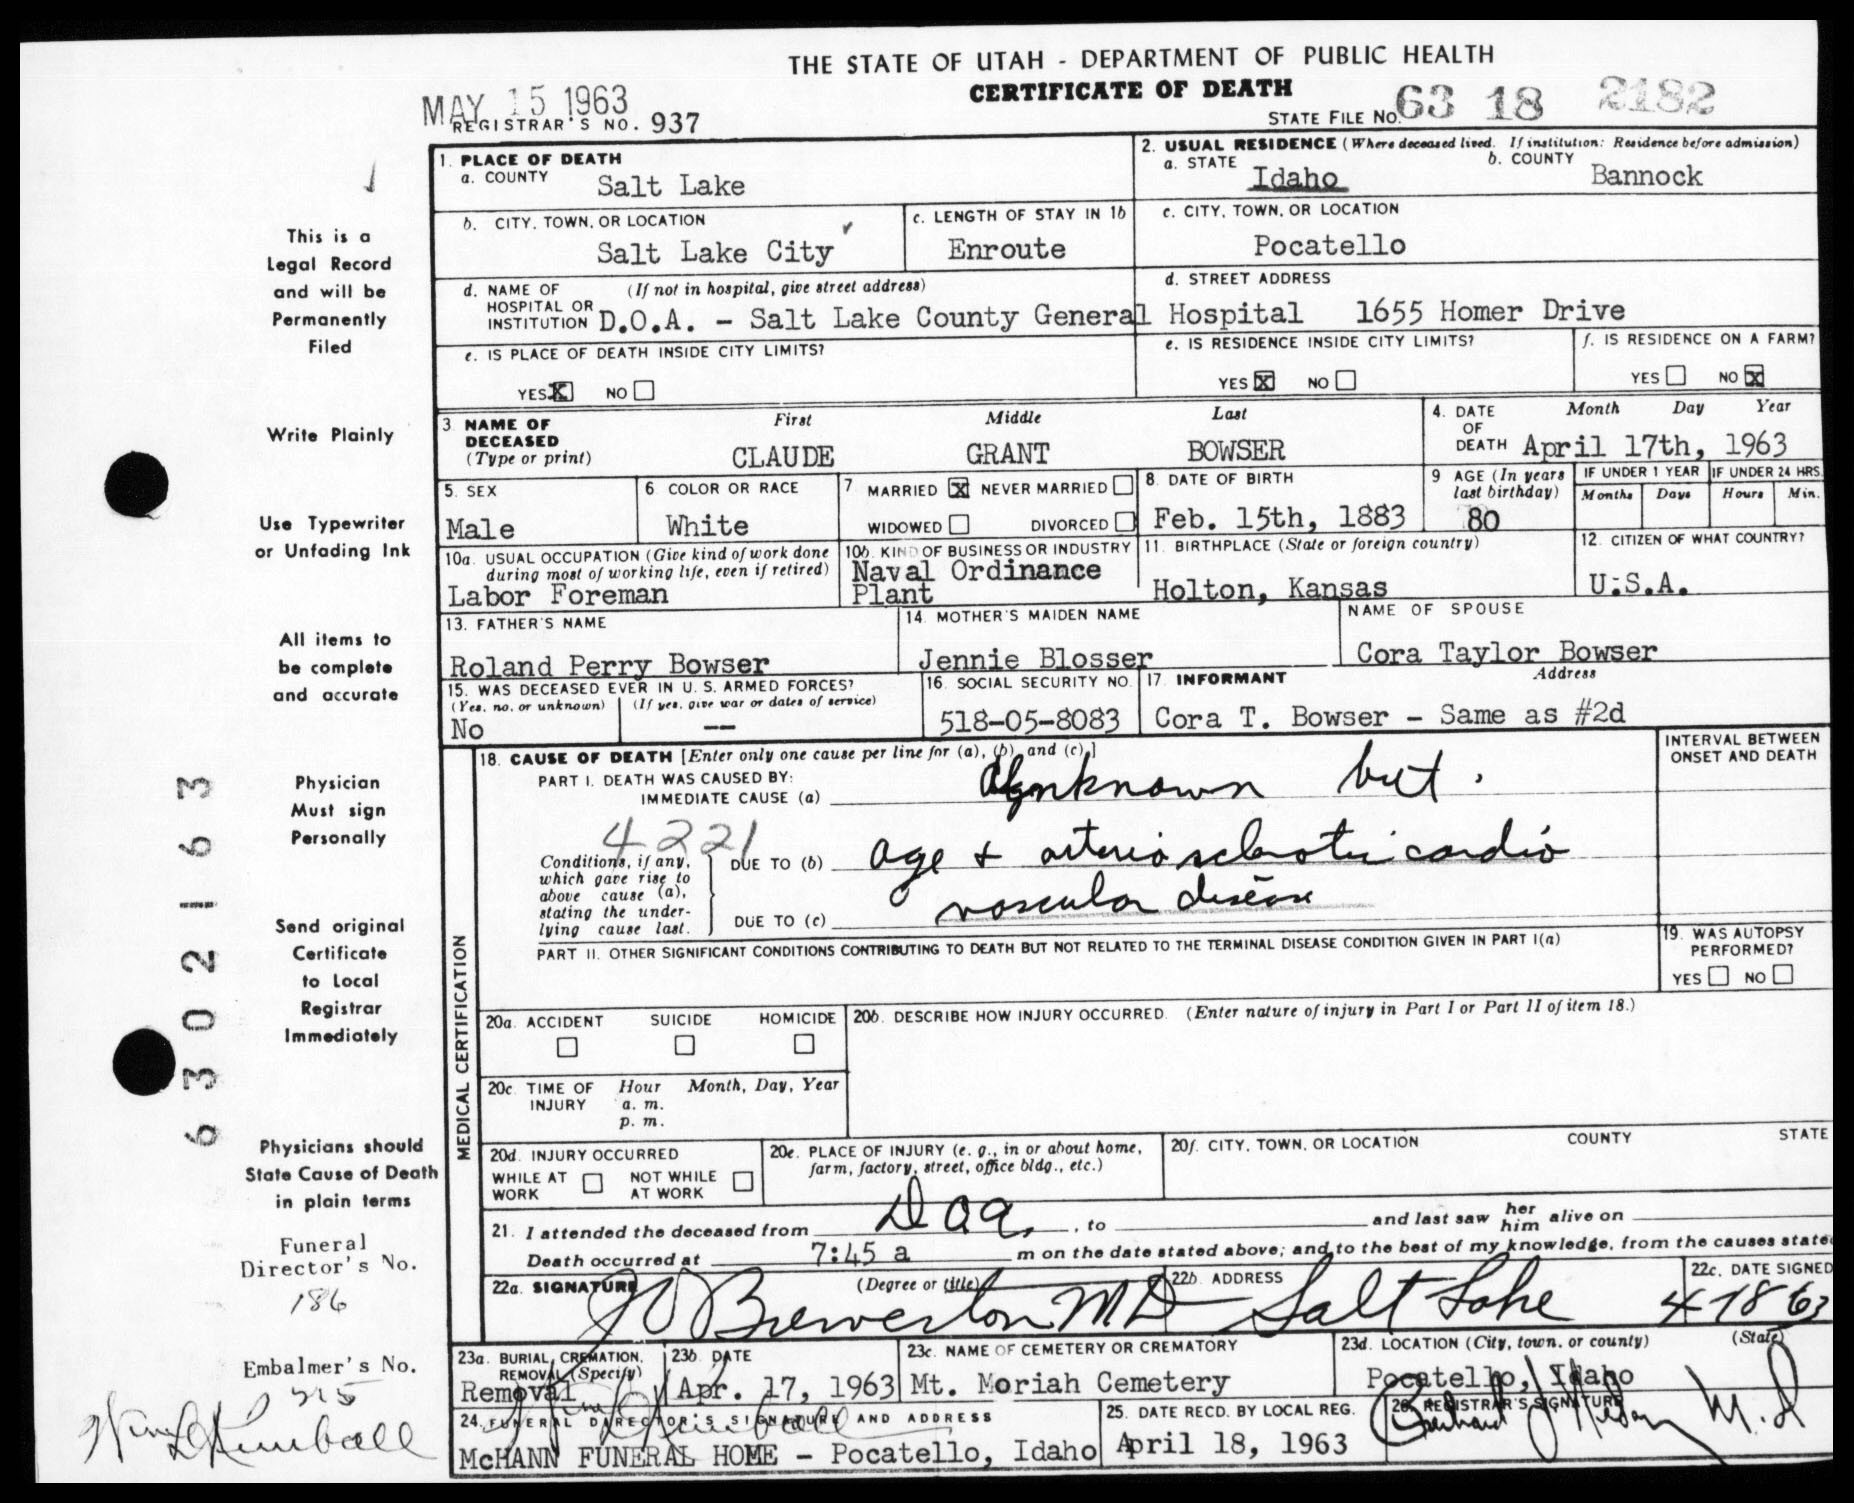 THE STATE OF UTAH - DEPARTMENT OF PUBLIC HEALTH
CERTIFICATE OF DEATH
MAY 15 1963
REGISTRAR'S NO. 937
STATE FILE NO. 63 18 2182
1. PLACE OF DEATH
a. COUNTY Salt Lake
2. USUAL RESIDENCE (Where deceased lived. If institution: Residence before admission)
a. STATE Idaho b. COUNTY Bannock
b. CITY, TOWN, OR LOCATION Salt Lake City
c. LENGTH OF STAY IN 1b Enroute
c. CITY, TOWN, OR LOCATION Pocatello
d. NAME OF HOSPITAL OR INSTITUTION (If not in hospital, give street address)
D.O.A. - Salt Lake County General Hospital
d. STREET ADDRESS 1655 Homer Drive
e. IS PLACE OF DEATH INSIDE CITY LIMITS?
YES X NO
e. IS RESIDENCE INSIDE CITY LIMITS?
YES X NO
f. IS RESIDENCE ON A FARM?
YES NO X
3. NAME OF DECEASED (Type or print)
First Middle Last
CLAUDE GRANT BOWSER
4. DATE OF DEATH Month Day Year
April 17th, 1963
5. SEX Male
6. COLOR OR RACE White
7. MARRIED X NEVER MARRIED
WIDOWED DIVORCED
8. DATE OF BIRTH Feb. 15th, 1883
9 AGE (In years last birthday) 80
IF UNDER 1 YEAR Months Days
IF UNDER 24 HRS. Hours Min.
10a. USUAL OCCUPATION (Give kind of work done during most of working life, even if retired)
Labor Foreman
10b. KIND OF BUSINESS OR INDUSTRY
Naval Ordinance Plant
11. BIRTHPLACE (State or foreign country)
Holton, Kansas
12. CITIZEN OF WHAT COUNTRY?
U.S.A.
13. FATHER'S NAME
Roland Perry Bowser
14. MOTHER'S MAIDEN NAME
Jennie Blosser
NAME OF SPOUSE
Cora Taylor Bowser
15. WAS DECEASED EVER IN U. S. ARMED FORCES?
(Yes, no, or unknown) (If yes, give war or dates of service)
No --
16. SOCIAL SECURITY NO.
518-05-8083
17. INFORMANT Address
Cora T. Bowser - Same as #2d
MEDICAL CERTIFICATION
18. CAUSE OF DEATH [Enter only one cause per line for (a), (b), and (c).]
INTERVAL BETWEEN ONSET AND DEATH
PART I. DEATH WAS CAUSED BY:
IMMEDIATE CAUSE (a) Unknown but
4221
Conditions, if any, which gave rise to above cause (a), stating the underlying cause last.
DUE TO (b) age + arteriosclerotic cardio
DUE TO (c) vascular disease
PART II. OTHER SIGNIFICANT CONDITIONS CONTRIBUTING TO DEATH BUT NOT RELATED TO THE TERMINAL DISEASE CONDITION GIVEN IN PART I(a)
19. WAS AUTOPSY PERFORMED?
YES NO
20a. ACCIDENT SUICIDE HOMICIDE
20b. DESCRIBE HOW INJURY OCCURRED. (Enter nature of injury in Part I or Part II of item 18.)
20c. TIME OF INJURY Hour Month, Day, Year
a. m.
p. m.
20d. INJURY OCCURRED
WHILE AT WORK NOT WHILE AT WORK
20e. PLACE OF INJURY (e. g., in or about home, farm, factory, street, office bldg., etc.)
20f. CITY, TOWN, OR LOCATION COUNTY STATE
21. I attended the deceased from DOA, to and last saw her him alive on
Death occurred at 7:45 a m on the date stated above; and to the best of my knowledge, from the causes state
22a. SIGNATURE (Degree or title)
Brewerton MD
22b. ADDRESS
Salt Lake
22c. DATE SIGNED
4-18 63
23a. BURIAL, CREMATION, REMOVAL (Specify)
Removal
23b. DATE
Apr. 17, 1963
23c. NAME OF CEMETERY OR CREMATORY
Mt. Moriah Cemetery
23d. LOCATION (City, town, or county) (State)
Pocatello, Idaho
24. FUNERAL DIRECTOR'S SIGNATURE AND ADDRESS
Kimball
McHANN FUNERAL HOME - Pocatello, Idaho
25. DATE RECD. BY LOCAL REG.
April 18, 1963
26. REGISTRAR'S SIGNATURE
M.D
This is a
Legal Record
and will be
Permanently
Filed
Write Plainly
Use Typewriter
or Unfading Ink
All items to
be complete
and accurate
Physician
Must sign
Personally
Send original
Certificate
to Local
Registrar
Immediately
Physicians should
State Cause of Death
in plain terms
Funeral
Director's No.
186
Embalmer's No.
Kimball
63 02163